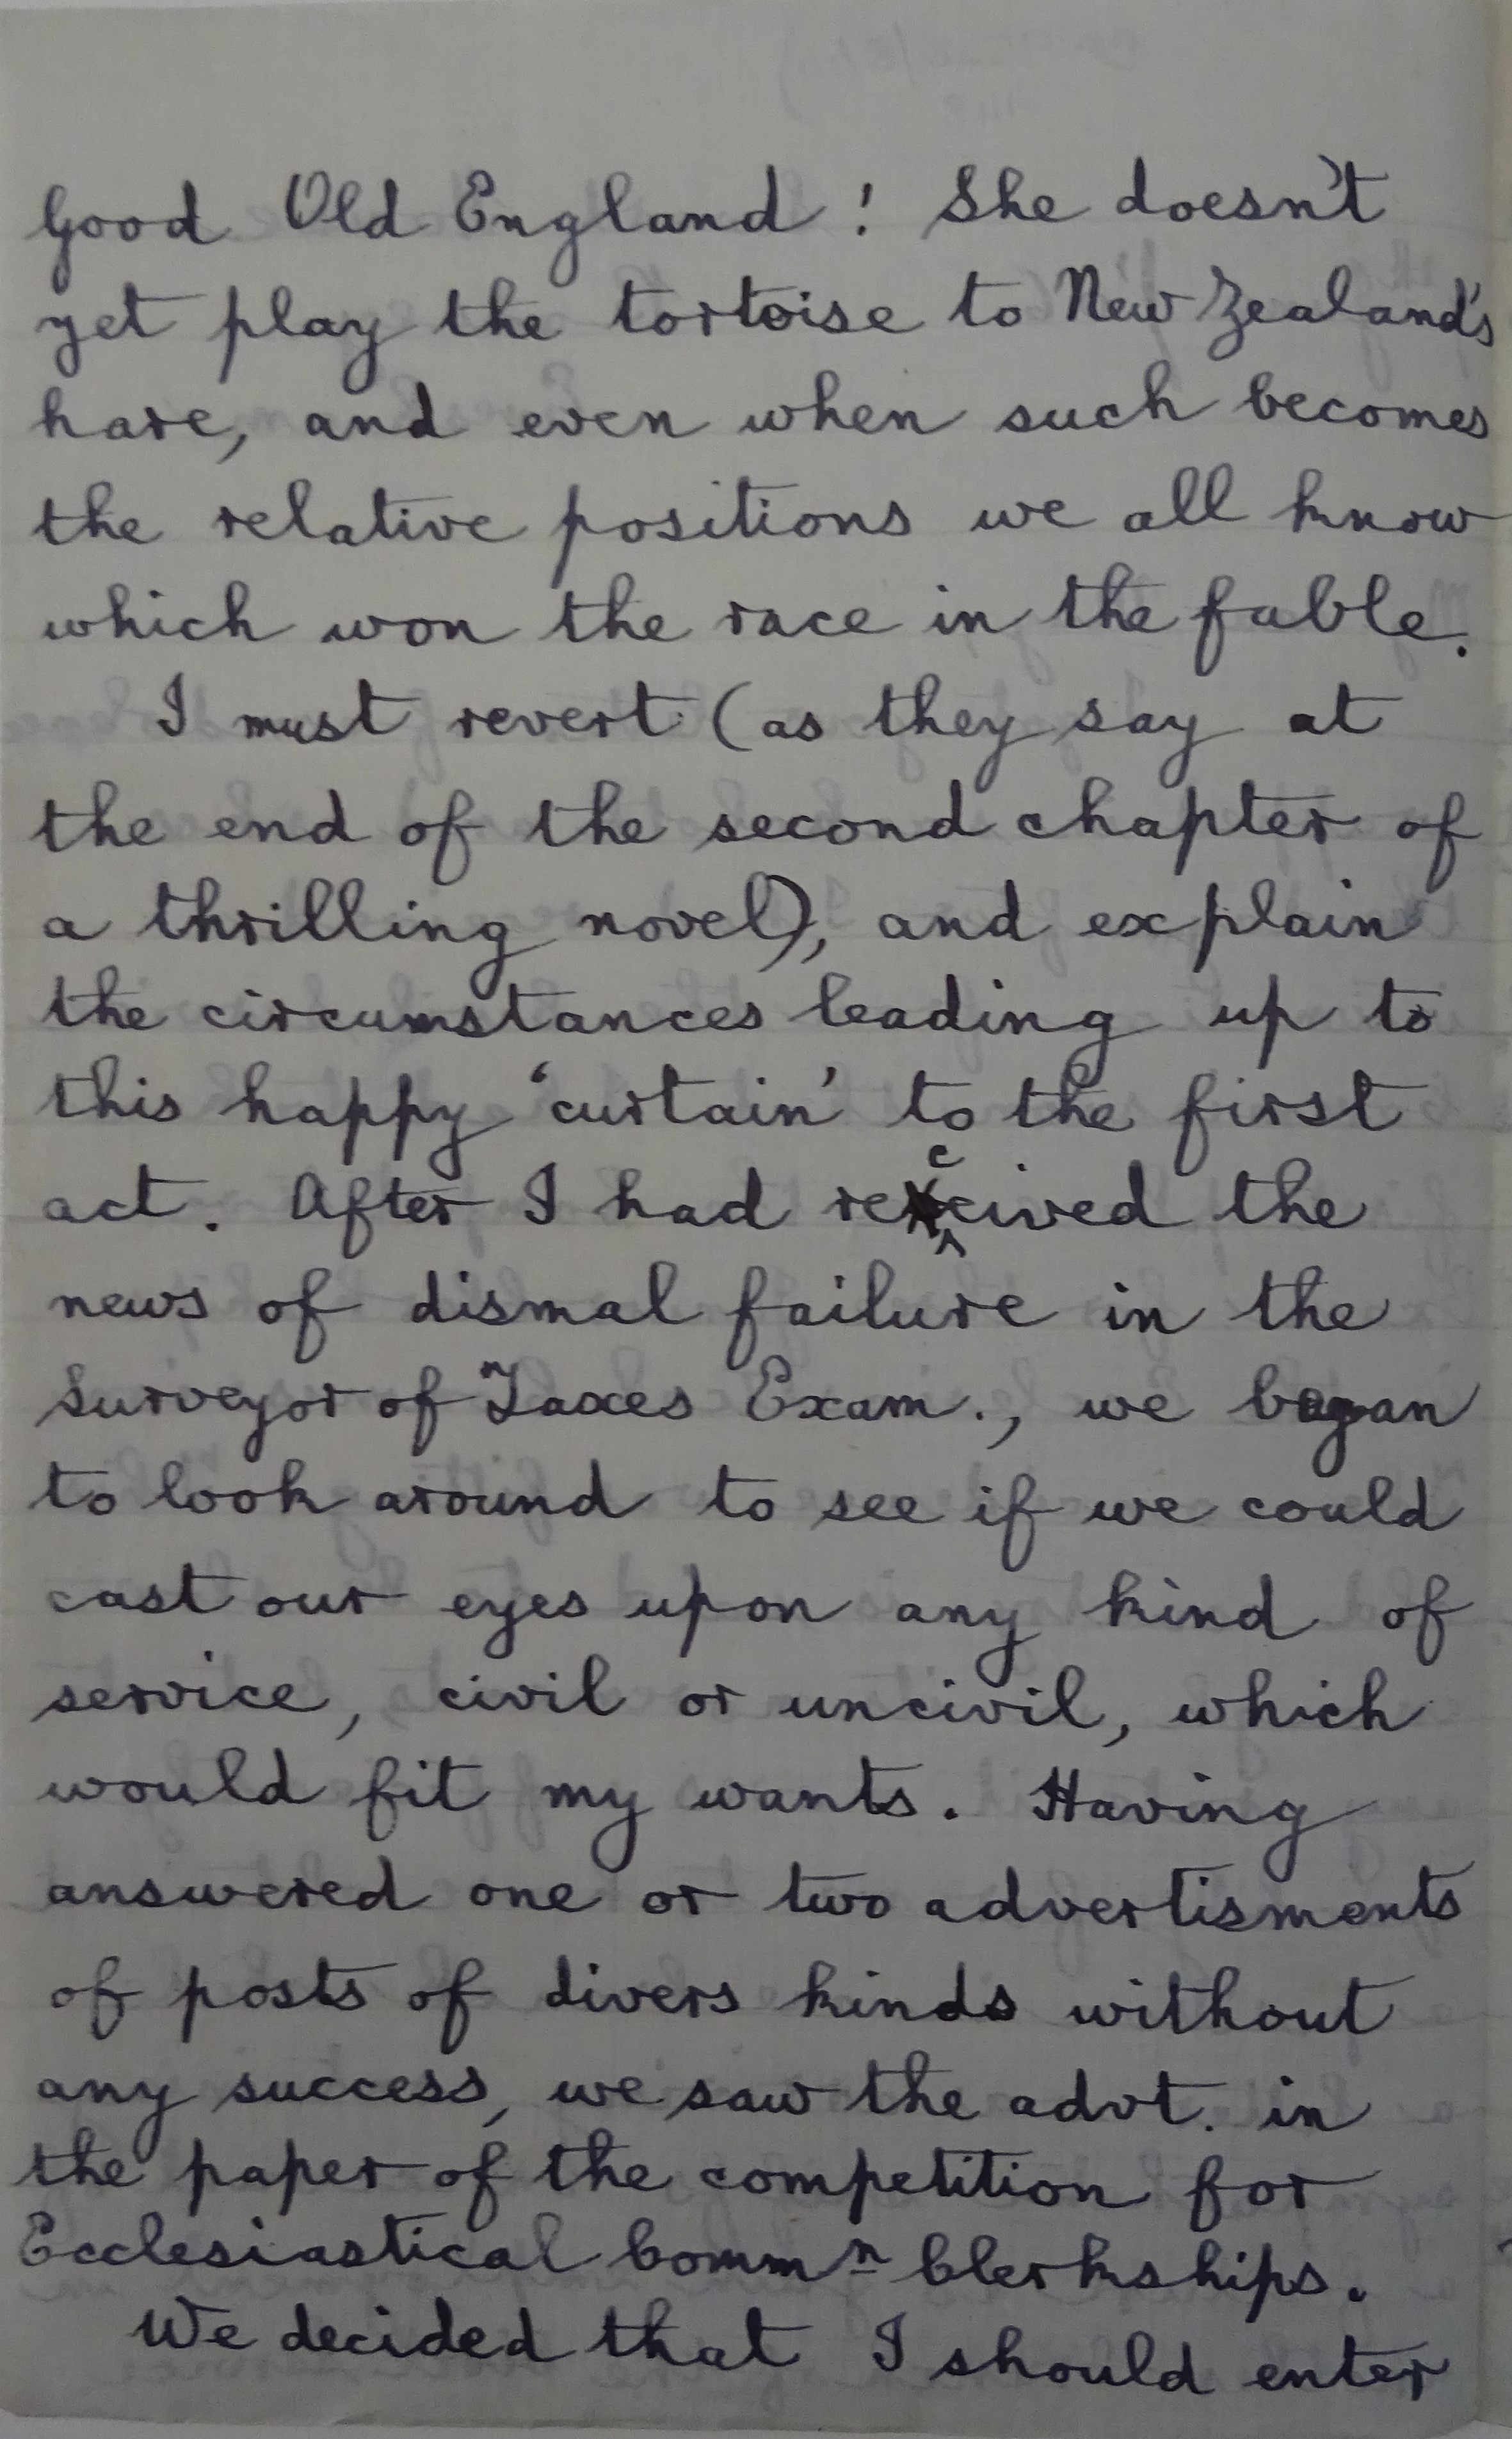 Good Old England! She doesn't
yet play the tortoise to New Zealand's
hare, and even when such becomes
the relative positions we all know
which won the race in the fable.
I must revert (as they say at
the end of the second chapter of
a thrilling novel), and explain
the circumstances leading up to
this happy 'curtain' to the first
act. After I had received the
news of dismal failure in the
Surveyor of Taxes Exam., we began
to look around to see if we could
cast our eyes upon any kind of
service, civil or uncivil, which
would fit my wants. Having
answered one or two advertisments
of posts of divers kinds without
any success, we saw the advt. in
the paper of the competition for
Ecclesiastical Commⁿ Clerkships.
We decided that I should enter